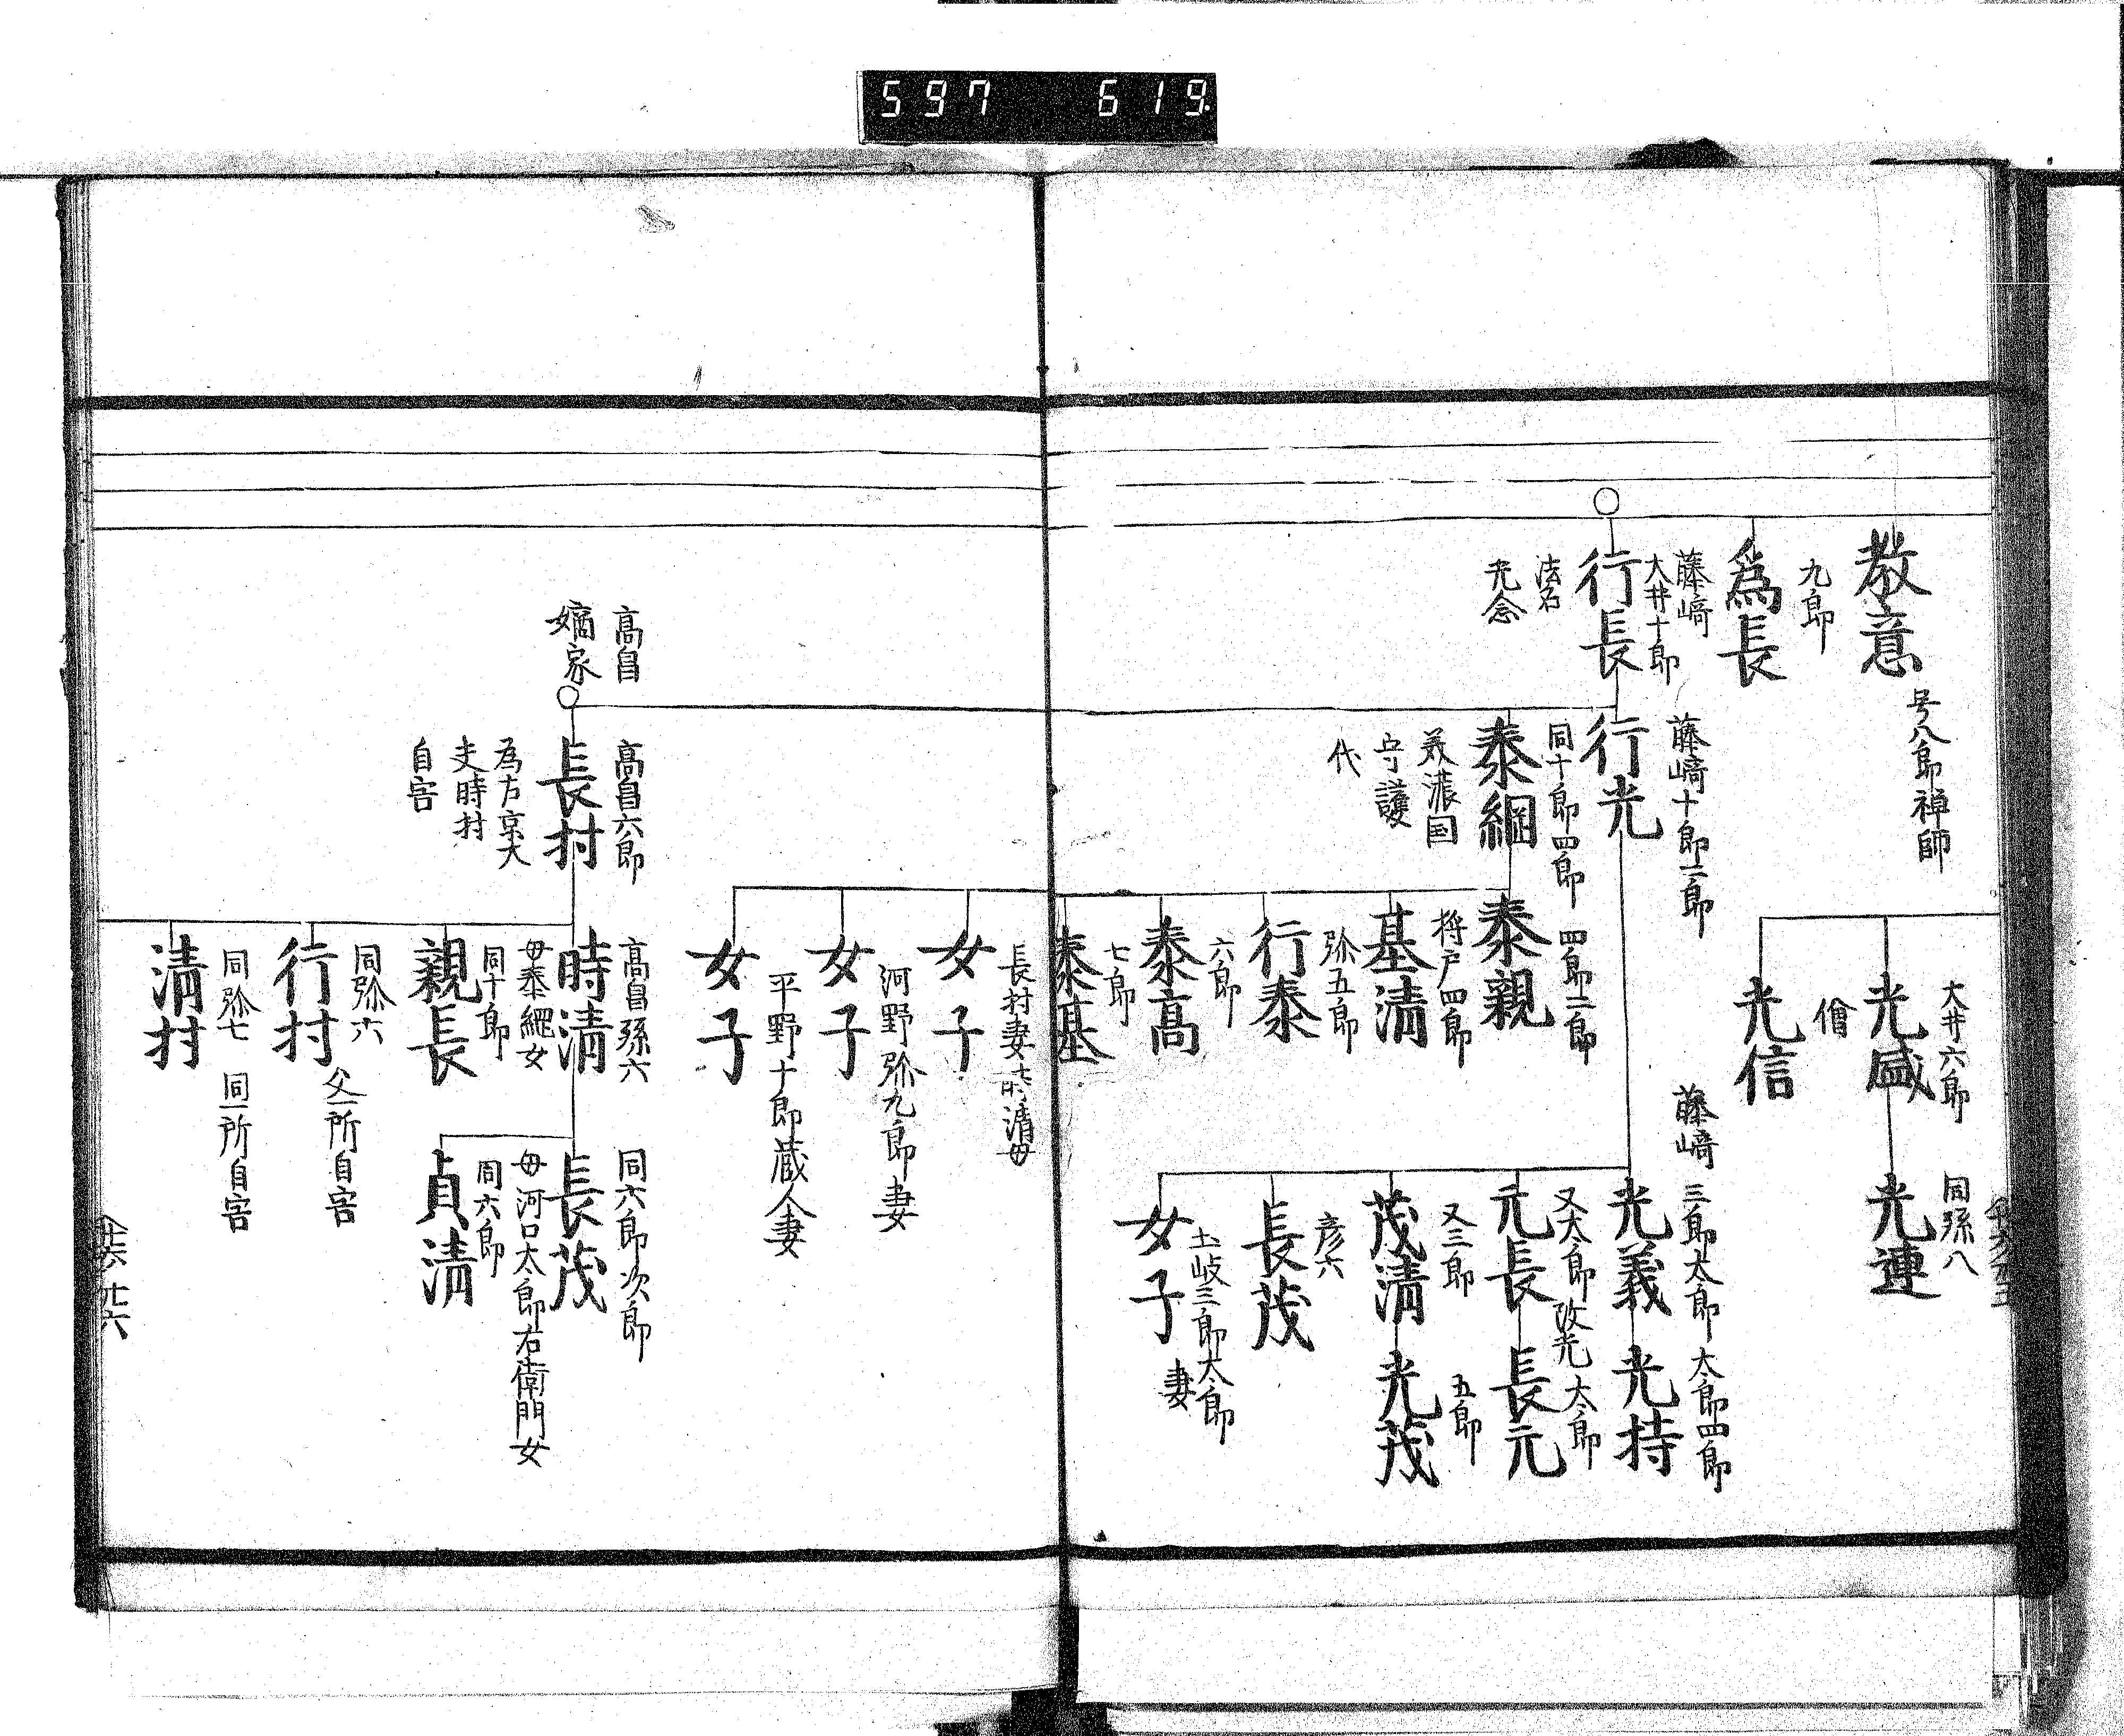 597 619
教意
号八郎禅師
九郎
為長
藤﨑
大井十郎
行長
法名
光念
大井六郎
光盛
同孫八
光連
僧
光信
藤﨑十郎二郎
行光
同十郎四郎
泰綱
美濃国
守護
代
藤﨑
三郎太郎
光義
太郎四郎
光持
又太郎改光
元長
太郎
長元
又三郎
茂清
五郎
光茂
彦六
長茂
土岐三郎太郎
妻
女子
四郎二郎
泰親
将戸四郎
基清
弥五郎
行泰
六郎
泰高
七郎
泰基
長村妻時清母
女子
河野弥九郎妻
女子
平野十郎蔵人妻
女子
高畠
嫡家
高畠六郎
長村
為方京大
夫時村
自害
高畠孫六
時清
母泰縄女
同六郎次郎
長茂
母河口太郎右衛門女
同六郎
貞清
同十郎
親長
同弥六
父一所自害
行村
同弥七
同一所自害
清村